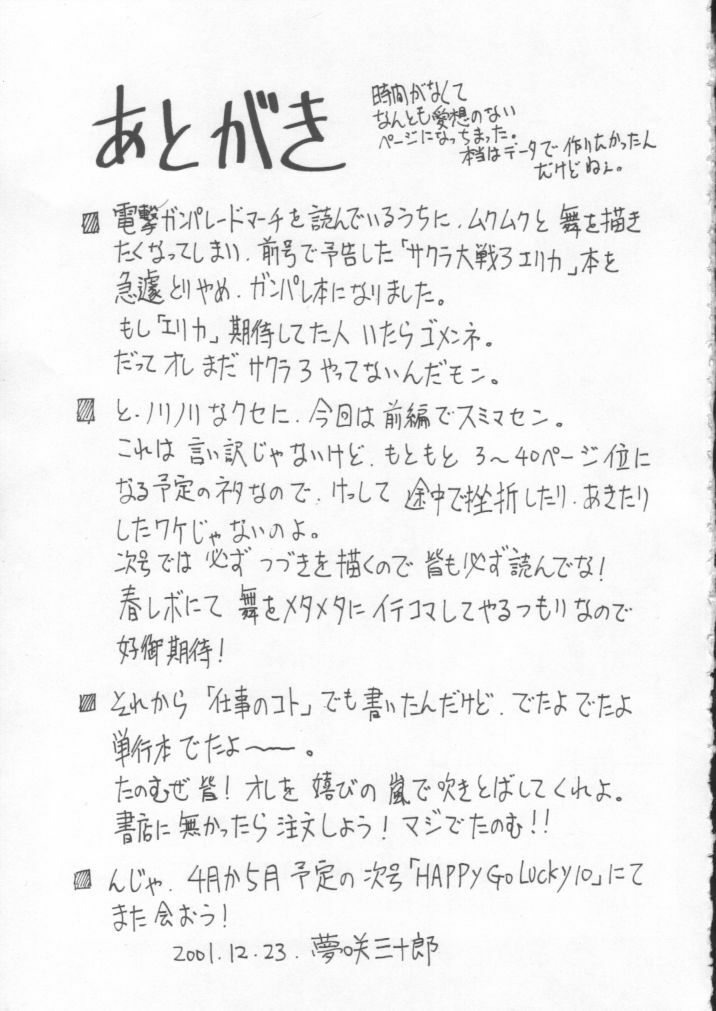 あとがき
時間がなくて
なんとも愛想のない
ページになっちまった。
本当はデータで作りたかったん
だけどねぇ。
電撃ガンパレードマーチを読んでいるうちに、ムクムクと舞を描き
たくなってしまい、前号で予告した「サクラ大戦3エリカ」本を
急遽とりやめ、ガンパレ本になりました。
もし「エリカ」期待してた人いたらゴメンネ。
だってオレまだサクラ3やってないんだモン。
と、ノリノリなクセに、今回は前編でスミマセン。
これは言い訳じゃないけど、もともと3〜40ページ位に
なる予定のネタなので、けっして途中で挫折したり、あきたり
したワケじゃないのよ。
次号では必ずつづきを描くので皆も必ず読んでな!
春レボにて舞をメタメタにイテコマしてやるつもりなので
好御期待!
それから「仕事のコト」でも書いたんだけど、でたよでたよ
単行本でたよ〜。
たのむぜ皆!オレを嬉びの嵐で吹きとばしてくれよ。
書店に無かったら注文しよう!マジでたのむ!!
んじゃ、4月か5月予定の次号「HAPPY Go LUCKY10」にて
また会おう!
2001.12.23.夢咲三十郎